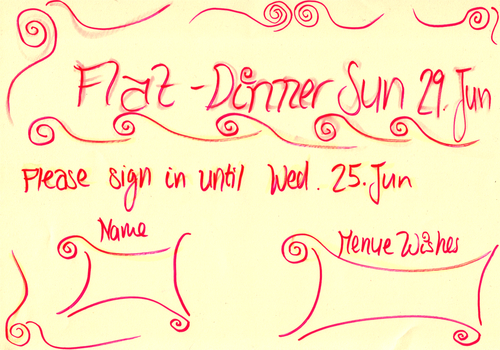 Flat-Dinner Sun 29. Jun
Please sign in until Wed. 25. Jun
Name
Menue Wishes